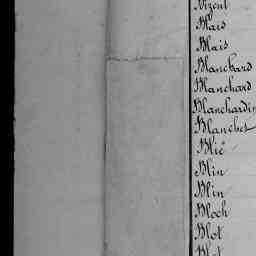 Bizent
Blais
Blais
Blanchard
Blanchard
Blanchardin
Blanchet
Blié
Blin
Blin
Bloch
Blot
Blot